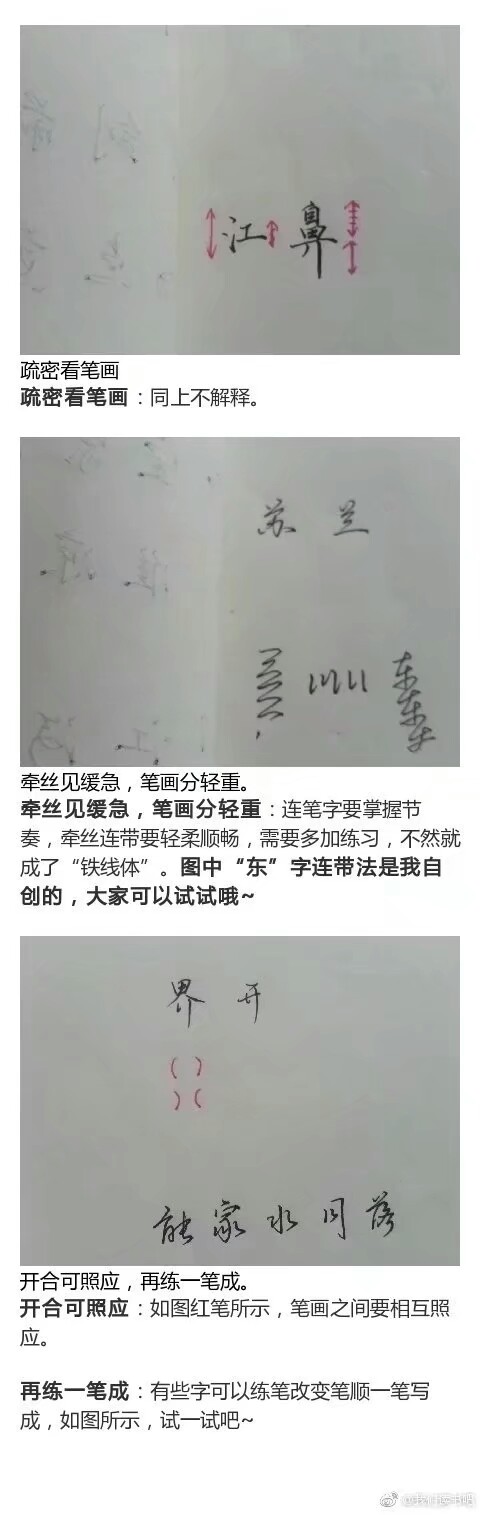 江 鼻
疏密看笔画
疏密看笔画：同上不解释。
苏 兰
东
牵丝见缓急，笔画分轻重。
牵丝见缓急，笔画分轻重：连笔字要掌握节
奏，牵丝连带要轻柔顺畅，需要多加练习，不然就
成了“铁线体”。图中“东”字连带法是我自
创的，大家可以试试哦~
界 开
能 家 水 同 落
开合可照应，再练一笔成。
开合可照应：如图红笔所示，笔画之间要相互照
应。
再练一笔成：有些字可以练笔改变笔顺一笔写
成，如图所示，试一试吧~